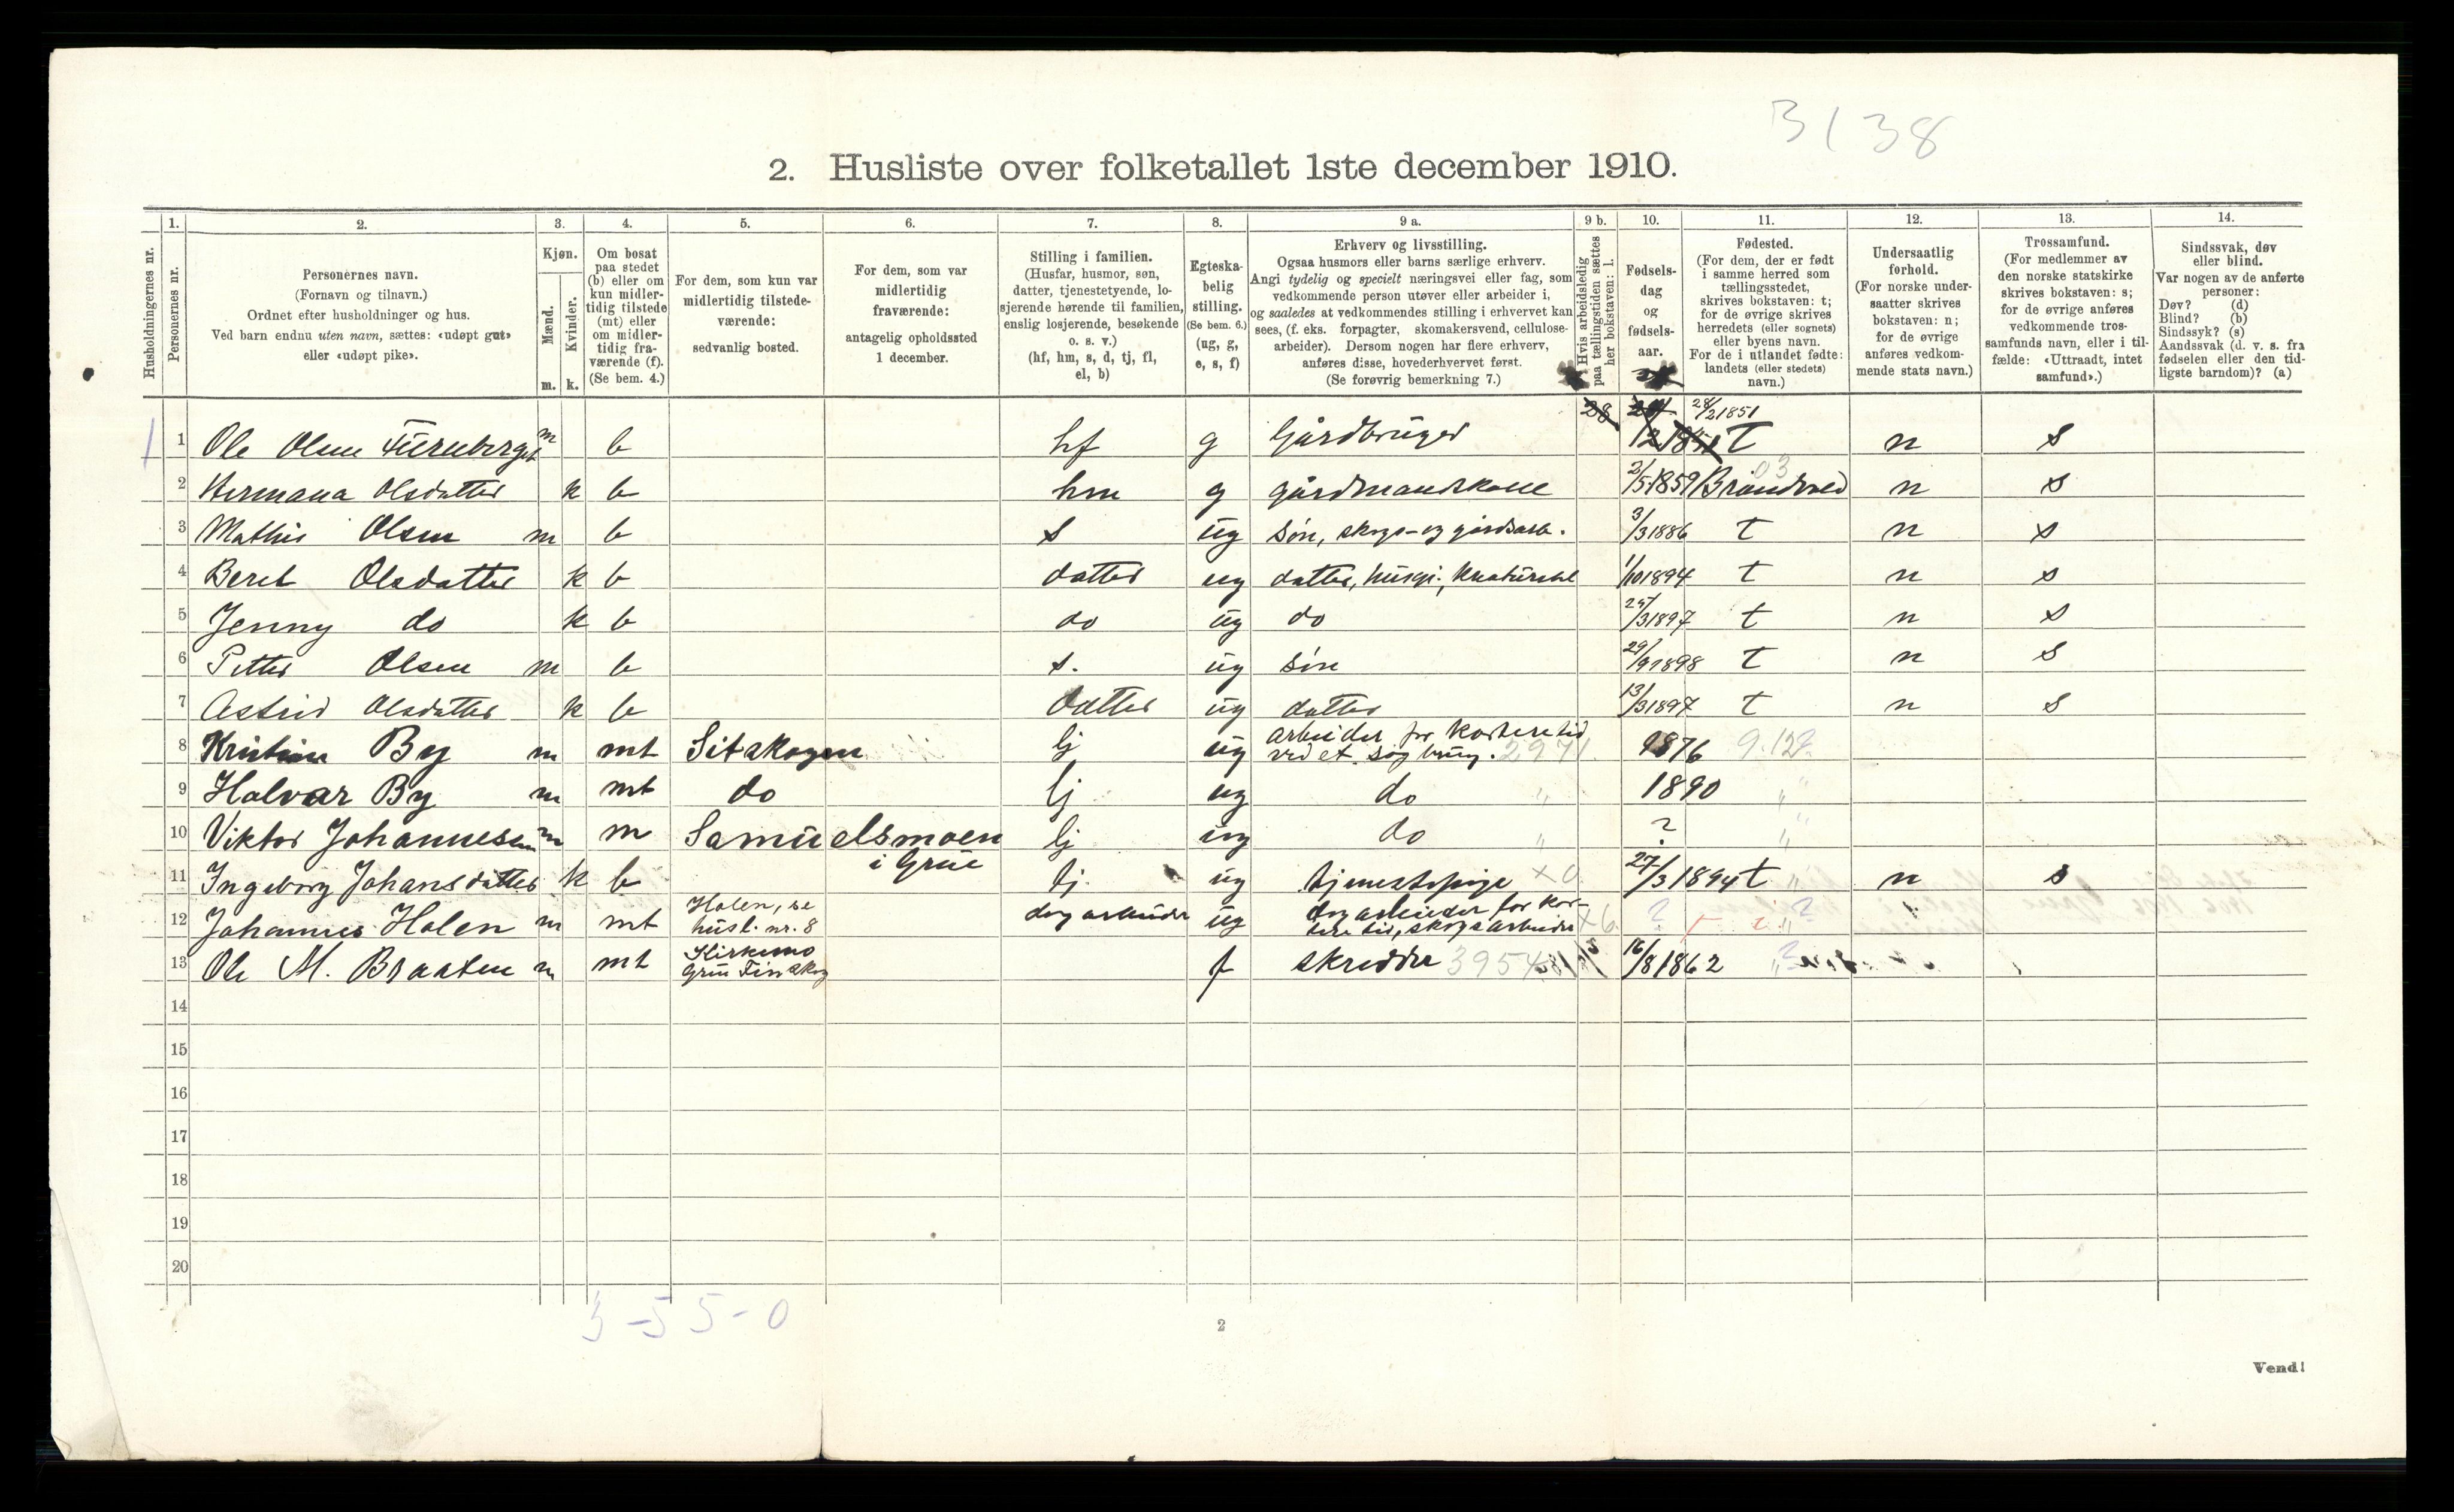 3138
2. Husliste over folketallet 1ste december 1910.
Husholdningernes nr.
1.
Personernes nr.
2.
Personernes navn.
(Fornavn og tilnavn.)
Ordnet efter husholdninger og hus.
Ved barn endnu uten navn, sættes: «udøpt gut»
eller «udøpt pike».
3.
Kjøn.
Mænd.
Kvinder.
m. k.
4.
Om bosat
paa stedet
(b) eller om
kun midler-
tidig tilstede
(mt) eller
om midler-
tidig fra-
værende (f).
(Se bem. 4.)
5.
For dem, som kun var
midlertidig tilstede-
værende:
sedvanlig bosted.
6.
For dem, som var
midlertidig
fraværende:
antagelig opholdssted
1 december.
7.
Stilling i familien.
(Husfar, husmor, søn,
datter, tjenestetyende, lo-
sjerende hørende til familien,
enslig losjerende, besøkende
o. s. v.)
(hf, hm, s, d, tj, fl,
el, b)
8.
Egteska-
belig
stilling.
(Se bem. 6.)
(ug, g,
e, s, f)
9 a.
Erhverv og livsstilling.
Ogsaa husmors eller barns særlige erhverv.
Angi tydelig og specielt næringsvei eller fag, som
vedkommende person utøver eller arbeider i,
og saaledes at vedkommendes stilling i erhvervet kan
sees, (f. eks. forpagter, skomakersvend, cellulose-
arbeider). Dersom nogen har flere erhverv,
anføres disse, hovederhvervet først.
(Se forøvrig bemerkning 7.)
9 b.
Hvis arbeidsledig
paa tællingstiden sættes
her bokstaven: l.
10.
Fødsels-
dag
og
fødsels-
aar.
11.
Fødested.
(For dem, der er født
i samme herred som
tællingsstedet,
skrives bokstaven: t;
for de øvrige skrives
herredets (eller sognets)
eller byens navn.
For de i utlandet fødte:
landets (eller stedets)
navn.)
12.
Undersaatlig
forhold.
(For norske under-
saatter skrives
bokstaven: n;
for de øvrige
anføres vedkom-
mende stats navn.)
13.
Trossamfund.
(For medlemmer av
den norske statskirke
skrives bokstaven: s;
for de øvrige anføres
vedkommende tros-
samfunds navn, eller i til-
fælde: «Uttraadt, intet
samfund».)
14.
Sindssvak, døv
eller blind.
Var nogen av de anførte
personer:
Døv? (d)
Blind? (b)
Sindssyk? (s)
Aandssvak (d. v. s. fra
fødselen eller den tid-
ligste barndom)? (a)
28 28/2 1851
1 Ole Olsen Furuberget m b hf g Gårdbruger t n s
2 Hermana Olsdatter k b hm g gårdmandskone 2/5 1859 Brandvold 03 n s
3 Mathis Olsen m b s ug søn, skogs- og gårdsarb. 3/3 1886 t n s
4 Beret Olsdatter k b datter ug datter, husgj., kreaturstel 1/10 1894 t n s
5 Jenny do k b do ug do 25/3 1897 t n s
6 Petter Olsen m b s. ug søn 29/9 1898 t n s
7 Astrid Olsdatter k b datter ug datter 13/3 1897 t n s
8 Kristian By m mt Sitskogen lj ug arbeider for kortere tid
ved et sagbrug. 2971 1876 9.12?
9 Halvar By m mt do lj ug do " 1890 "
10 Viktor Johannesen m m Samuelsmoen lj ug do " ? "
i Grue
11 Ingeborg Johansdatter k b tj. ug tjenestepige x0 27/3 1894 t n s
12 Johannes Holen m mt Holen, se
husl. nr. 8 dagarbeider ug dagarbeider for kor-
tere tid, skogsarbeider x6 ? ?
13 Ole M. Braaten m mt Kirkemo
Grue Finskog f skredder 3954 16/8 1862
14
15
16
17
18
19
20
3-5 5-0
2
Vend!